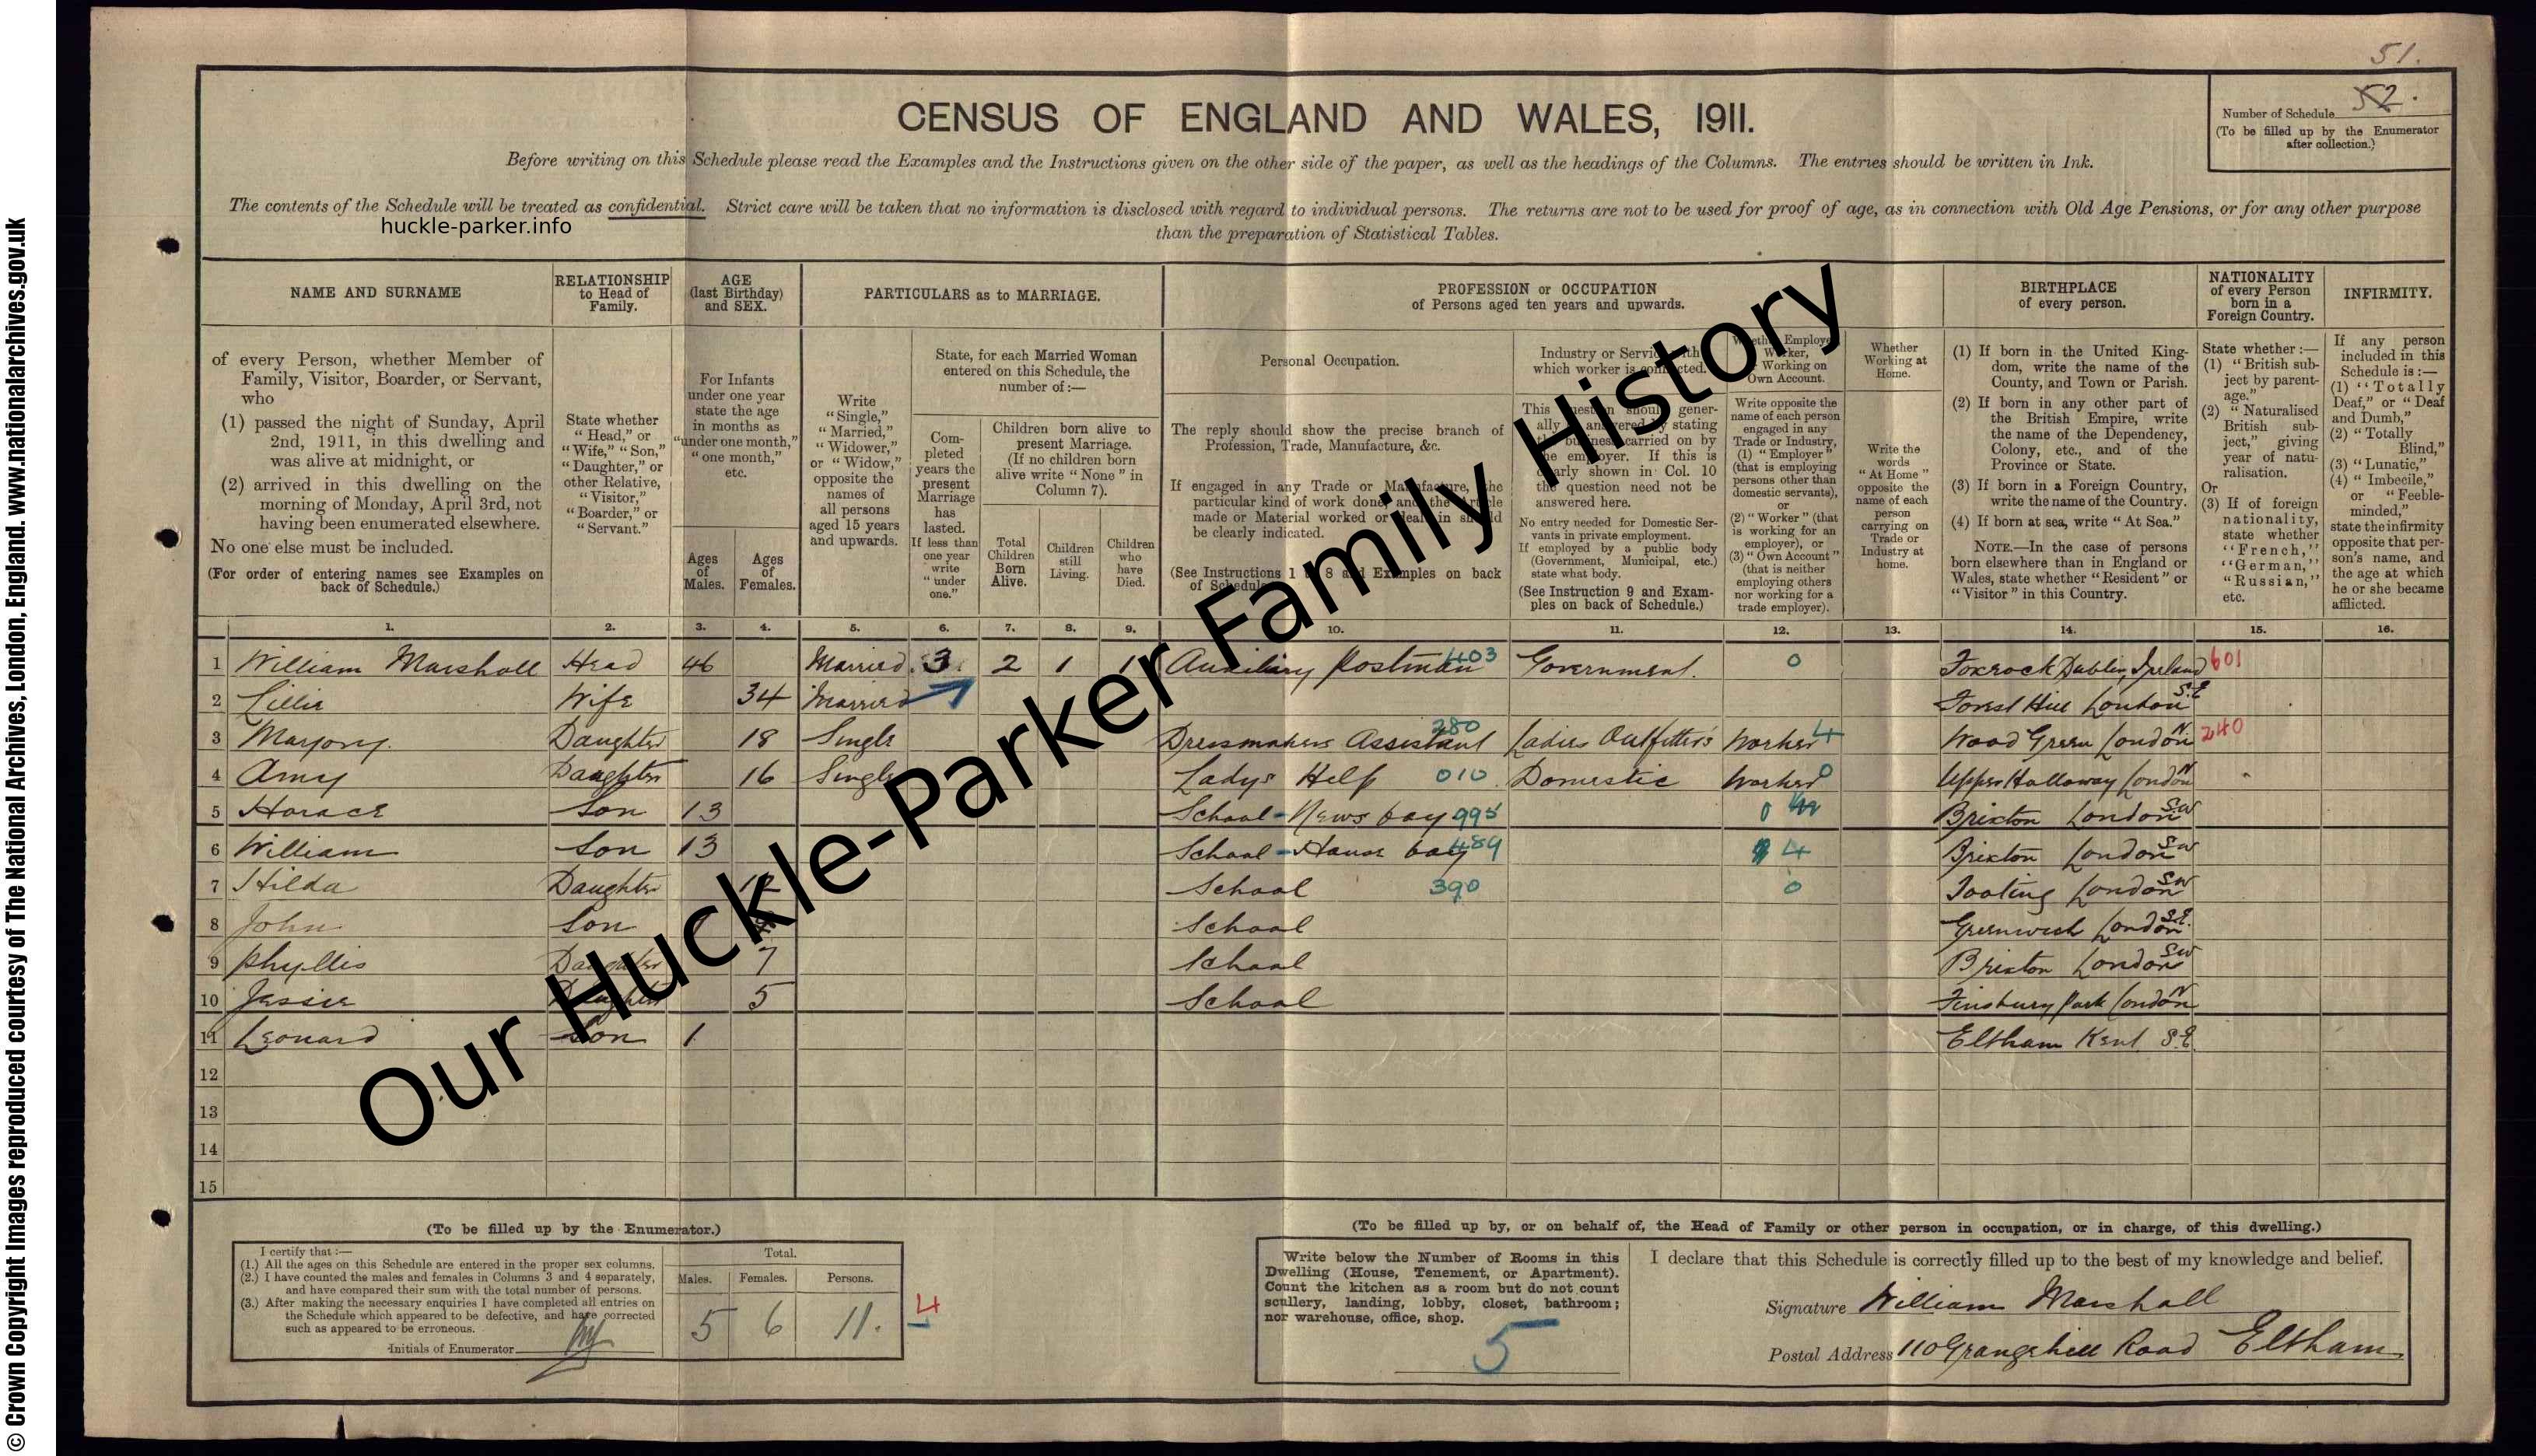 51.
CENSUS OF ENGLAND AND WALES, 1911.
Number of Schedule 52.
(To be filled up by the Enumerator after collection.)
Before writing on this Schedule please read the Examples and the Instructions given on the other side of the paper, as well as the headings of the Columns. The entries should be written in Ink.
The contents of the Schedule will be treated as confidential. Strict care will be taken that no information is disclosed with regard to individual persons. The returns are not to be used for proof of age, as in connection with Old Age Pensions, or for any other purpose
than the preparation of Statistical Tables.
huckle-parker.info
NAME AND SURNAME
RELATIONSHIP
to Head of
Family.
AGE
(last Birthday)
and SEX.
PARTICULARS as to MARRIAGE.
PROFESSION or OCCUPATION
of Persons aged ten years and upwards.
BIRTHPLACE
of every person.
NATIONALITY
of every Person
born in a
Foreign Country.
INFIRMITY.
of every Person, whether Member of
Family, Visitor, Boarder, or Servant,
who
(1) passed the night of Sunday, April
2nd, 1911, in this dwelling and
was alive at midnight, or
(2) arrived in this dwelling on the
morning of Monday, April 3rd, not
having been enumerated elsewhere.
No one else must be included.
(For order of entering names see Examples on
back of Schedule.)
State whether
"Head," or
"Wife," "Son,"
"Daughter," or
other Relative,
"Visitor,"
"Boarder," or
"Servant."
For Infants
under one year
state the age
in months as
"under one month,"
"one month,"
etc.
Ages
of
Males.
Ages
of
Females.
Write
"Single,"
"Married,"
"Widower,"
or "Widow,"
opposite the
names of
all persons
aged 15 years
and upwards.
State, for each Married Woman
entered on this Schedule, the
number of:—
Com-
pleted
years the
present
Marriage
has
lasted.
If less than
one year
write
"under
one."
Children born alive to
present Marriage.
(If no children born
alive write "None" in
Column 7).
Total
Children
Born
Alive.
Children
still
Living.
Children
who
have
Died.
Personal Occupation.
The reply should show the precise branch of
Profession, Trade, Manufacture, &c.
If engaged in any Trade or Manufacture, the
particular kind of work done, and the Article
made or Material worked or dealt in should
be clearly indicated.
(See Instructions 1 to 8 and Examples on back
of Schedule
Industry or Service with
which worker is connected.
This question should gener-
ally be answered by stating
the business carried on by
the employer. If this is
clearly shown in Col. 10
the question need not be
answered here.
No entry needed for Domestic Ser-
vants in private employment.
If employed by a public body
(Government, Municipal, etc.)
state what body.
(See Instruction 9 and Exam-
ples on back of Schedule.)
Whether Employer,
Worker,
or Working on
Own Account.
Write opposite the
name of each person
engaged in any
Trade or Industry,
(1) "Employer"
(that is employing
persons other than
domestic servants),
or
(2) "Worker" (that
is working for an
employer), or
(3) "Own Account"
(that is neither
employing others
nor working for a
trade employer).
Whether
Working at
Home.
Write the
words
"At Home"
opposite the
name of each
person
carrying on
Trade or
Industry at
home.
(1) If born in the United King-
dom, write the name of the
County, and Town or Parish.
(2) If born in any other part of
the British Empire, write
the name of the Dependency,
Colony, etc., and of the
Province or State.
(3) If born in a Foreign Country,
write the name of the Country.
(4) If born at sea, write "At Sea."
NOTE.—In the case of persons
born elsewhere than in England or
Wales, state whether "Resident" or
"Visitor" in this Country.
State whether:—
(1) "British sub-
ject by parent-
age."
(2) "Naturalised
British sub-
ject," giving
year of natu-
ralisation.
Or
(3) If of foreign
nationality,
state whether
"French,"
"German,"
"Russian,"
etc.
If any person
included in this
Schedule is:—
(1) "Totally
Deaf," or "Deaf
and Dumb,"
(2) "Totally
Blind,"
(3) "Lunatic,"
(4) "Imbecile,"
or "Feeble-
minded,"
state the infirmity
opposite that per-
son's name, and
the age at which
he or she became
afflicted.
1. 2. 3. 4. 5. 6. 7. 8. 9. 10. 11. 12. 13. 14. 15. 16.
1 William Marshall Head 46 Married 3 2 1 1 Auxiliary Postman 403 Government. 0 Foxrock Dublin, Ireland 601
2 Lillie Wife 34 Married Forest Hill London S.E
3 Marjory. Daughter 18 Single Dressmakers Assistant 280 Ladies Outfitter's Worker 4 Wood Green London N 240
4 Amy Daughter 16 Single Ladys Help 010 Domestic Worker 0 Upper Holloway London N
5 Horace Son 13 School - News boy 995 0 Brixton London SW
6 William Son 13 School - House boy 489 4 Brixton London SW
7 Hilda Daughter 12 School 390 0 Tooting London SW
8 John Son School Greenwich London S.E.
9 Phyllis Daughter 7 School Brixton London SW
10 Jessie Daughter 5 School Finsbury Park London N
11 Leonard Son 1 Eltham Kent S.E.
12
13
14
15
Our Huckle-Parker Family History
(To be filled up by the Enumerator.)
I certify that:—
(1.) All the ages on this Schedule are entered in the proper sex columns.
(2.) I have counted the males and females in Columns 3 and 4 separately,
and have compared their sum with the total number of persons.
(3.) After making the necessary enquiries I have completed all entries on
the Schedule which appeared to be defective, and have corrected
such as appeared to be erroneous.
Initials of Enumerator
Total.
Males. Females. Persons.
5 6 11. 4
(To be filled up by, or on behalf of, the Head of Family or other person in occupation, or in charge, of this dwelling.)
Write below the Number of Rooms in this
Dwelling (House, Tenement, or Apartment).
Count the kitchen as a room but do not count
scullery, landing, lobby, closet, bathroom;
nor warehouse, office, shop.
5
I declare that this Schedule is correctly filled up to the best of my knowledge and belief.
Signature William Marshall
Postal Address 110 Grangehill Road Eltham
© Crown Copyright Images reproduced courtesy of The National Archives, London, England. www.nationalarchives.gov.uk